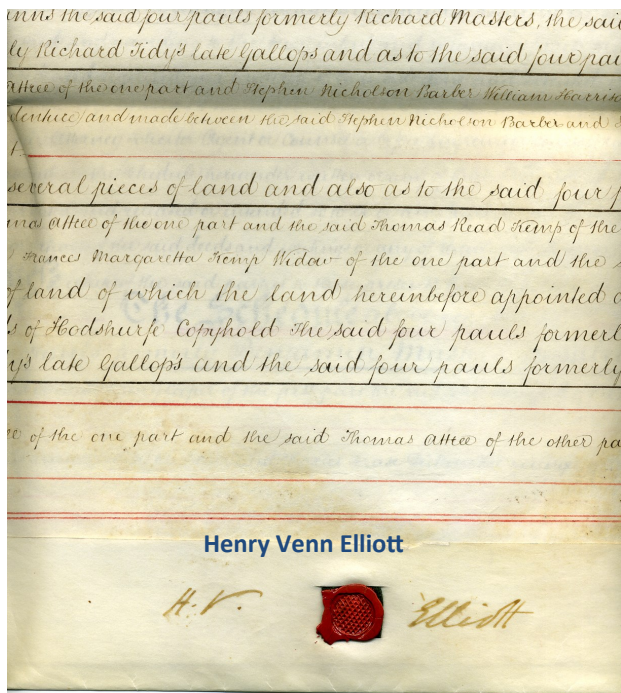 inns the said four pauls formerly Richard Masters, the said
ly Richard Tidy's late Gallops and as to the said four pau
Attree of the one part and Stephen Nicholson Barber William Harriso
dentice) and made between the said Stephen Nicholson Barber and
several pieces of land and also as to the said four p
mas Attree of the one part and the said Thomas Read Kemp of the
Frances Margaretta Kemp Widow of the one part and the s
of land of which the land hereinbefore appointed
ls of Hodshurfe Copyhold The said four pauls formerl
dy's late Gallop's and the said four pauls formerly
ee of the one part and the said Thomas Attree of the other pa
Henry Venn Elliott
H. V. Elliott